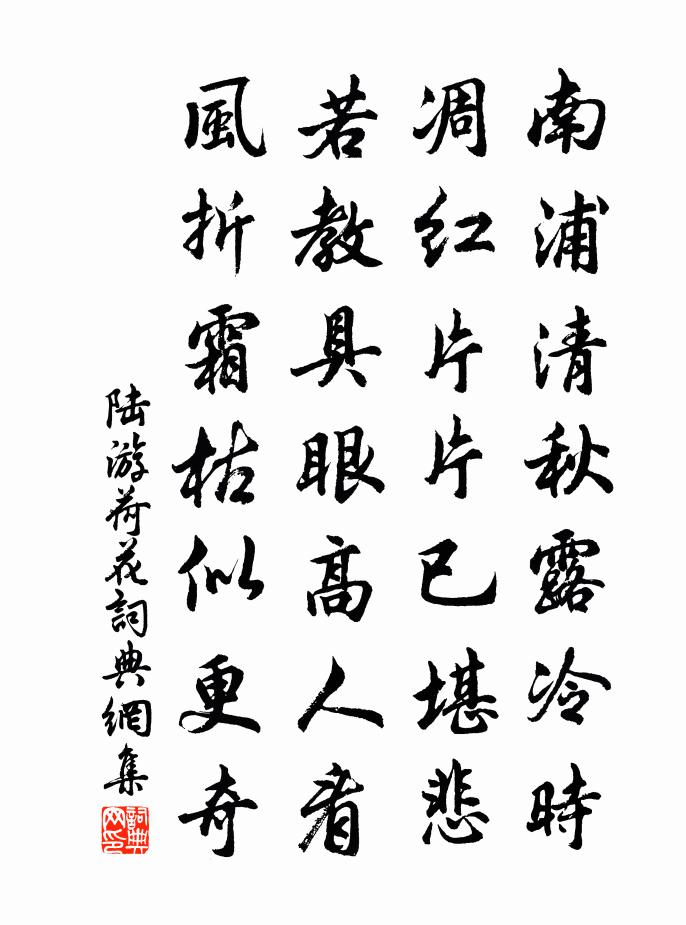 南浦清秋露冷時
凋紅片片已堪悲
若教具眼高人看
風折霜枯似更奇
陆游荷花詞典網集
詞典网印